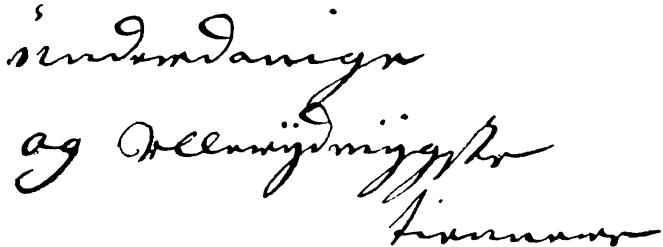 ünderdanige
og allerÿdmÿgste
tienner